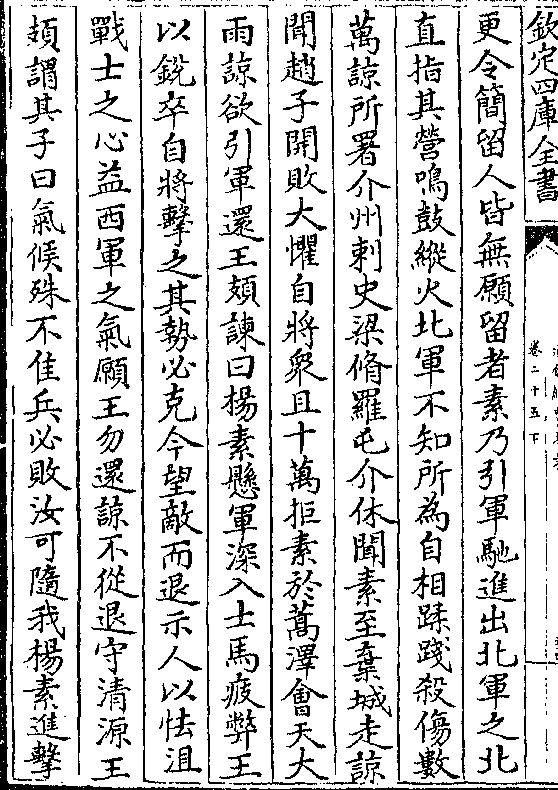 欽定四庫全書
卷二十五下
更令簡留人皆無願留者素乃引軍馳進出北軍之北
直指其營鳴鼓縱火北軍不知所為自相蹂踐殺傷數
萬諒所署介州刺史梁脩羅屯介休聞素至棄城走諒
聞趙子開敗大懼自將衆且十萬拒素於蒿澤會天大
雨諒欲引軍還王頍諫曰楊素懸軍深入士馬疲弊王
以銳卒自將擊之其勢必克今望敵而退示人以怯沮
戰士之心益西軍之氣願王勿還諒不從退守清源王
頍謂其子曰氣候殊不佳兵必敗汝可隨我楊素進擊